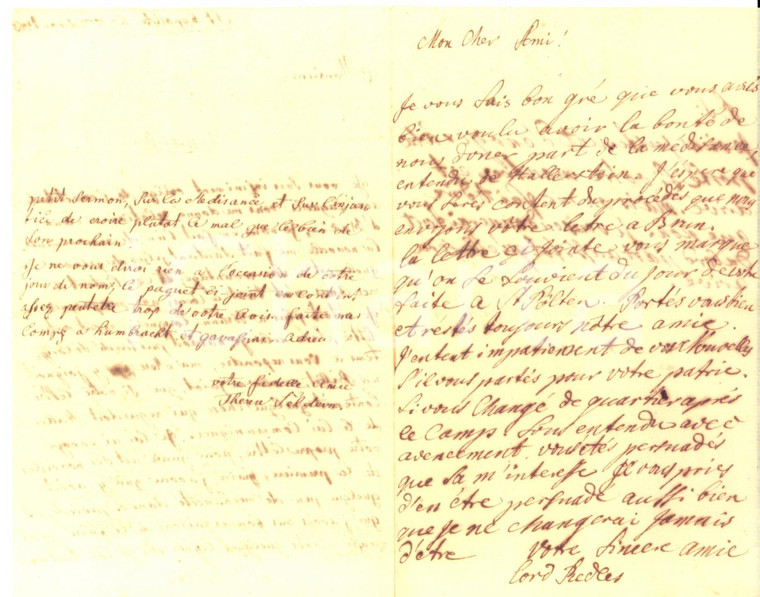 petit sermon, sur la medisance et sur l'injus
tice de croire plutot le mal que le bien de
son prochain
Je ne vous dirai rien a l'occasion de votre
jour de nom, le paquet ci joint en contient
assez peutetre trop de votre avis faite mes
Comps a humbracht et gavassini adieu
votre fidelle amie
Mon Cher Ami!
Je vous sais bon gré que vous avés
bien voulu avoir la bonté de
nous doner part de la medisance
entendue de J'espere que
vous serés content du procédés que nous
envoyons votre letre a Brun.
la lettre ci jointe vous marque
qu'on se souvient du jour de
faite a St Pölten. Portés vous bien
et restés toujours notre amie.
J'entent impatiement de vos Nouvelles
S'il vous partés pour votre patrie.
Si vous Changé de quartier aprés
le Camp. Sous entendu avec
avencement. vous etés persuadés
que sa m'interesse Je vous pries
d'en étre persuadé aussi bien
que je ne changerai jamais
d'étre Votre Sincere amie